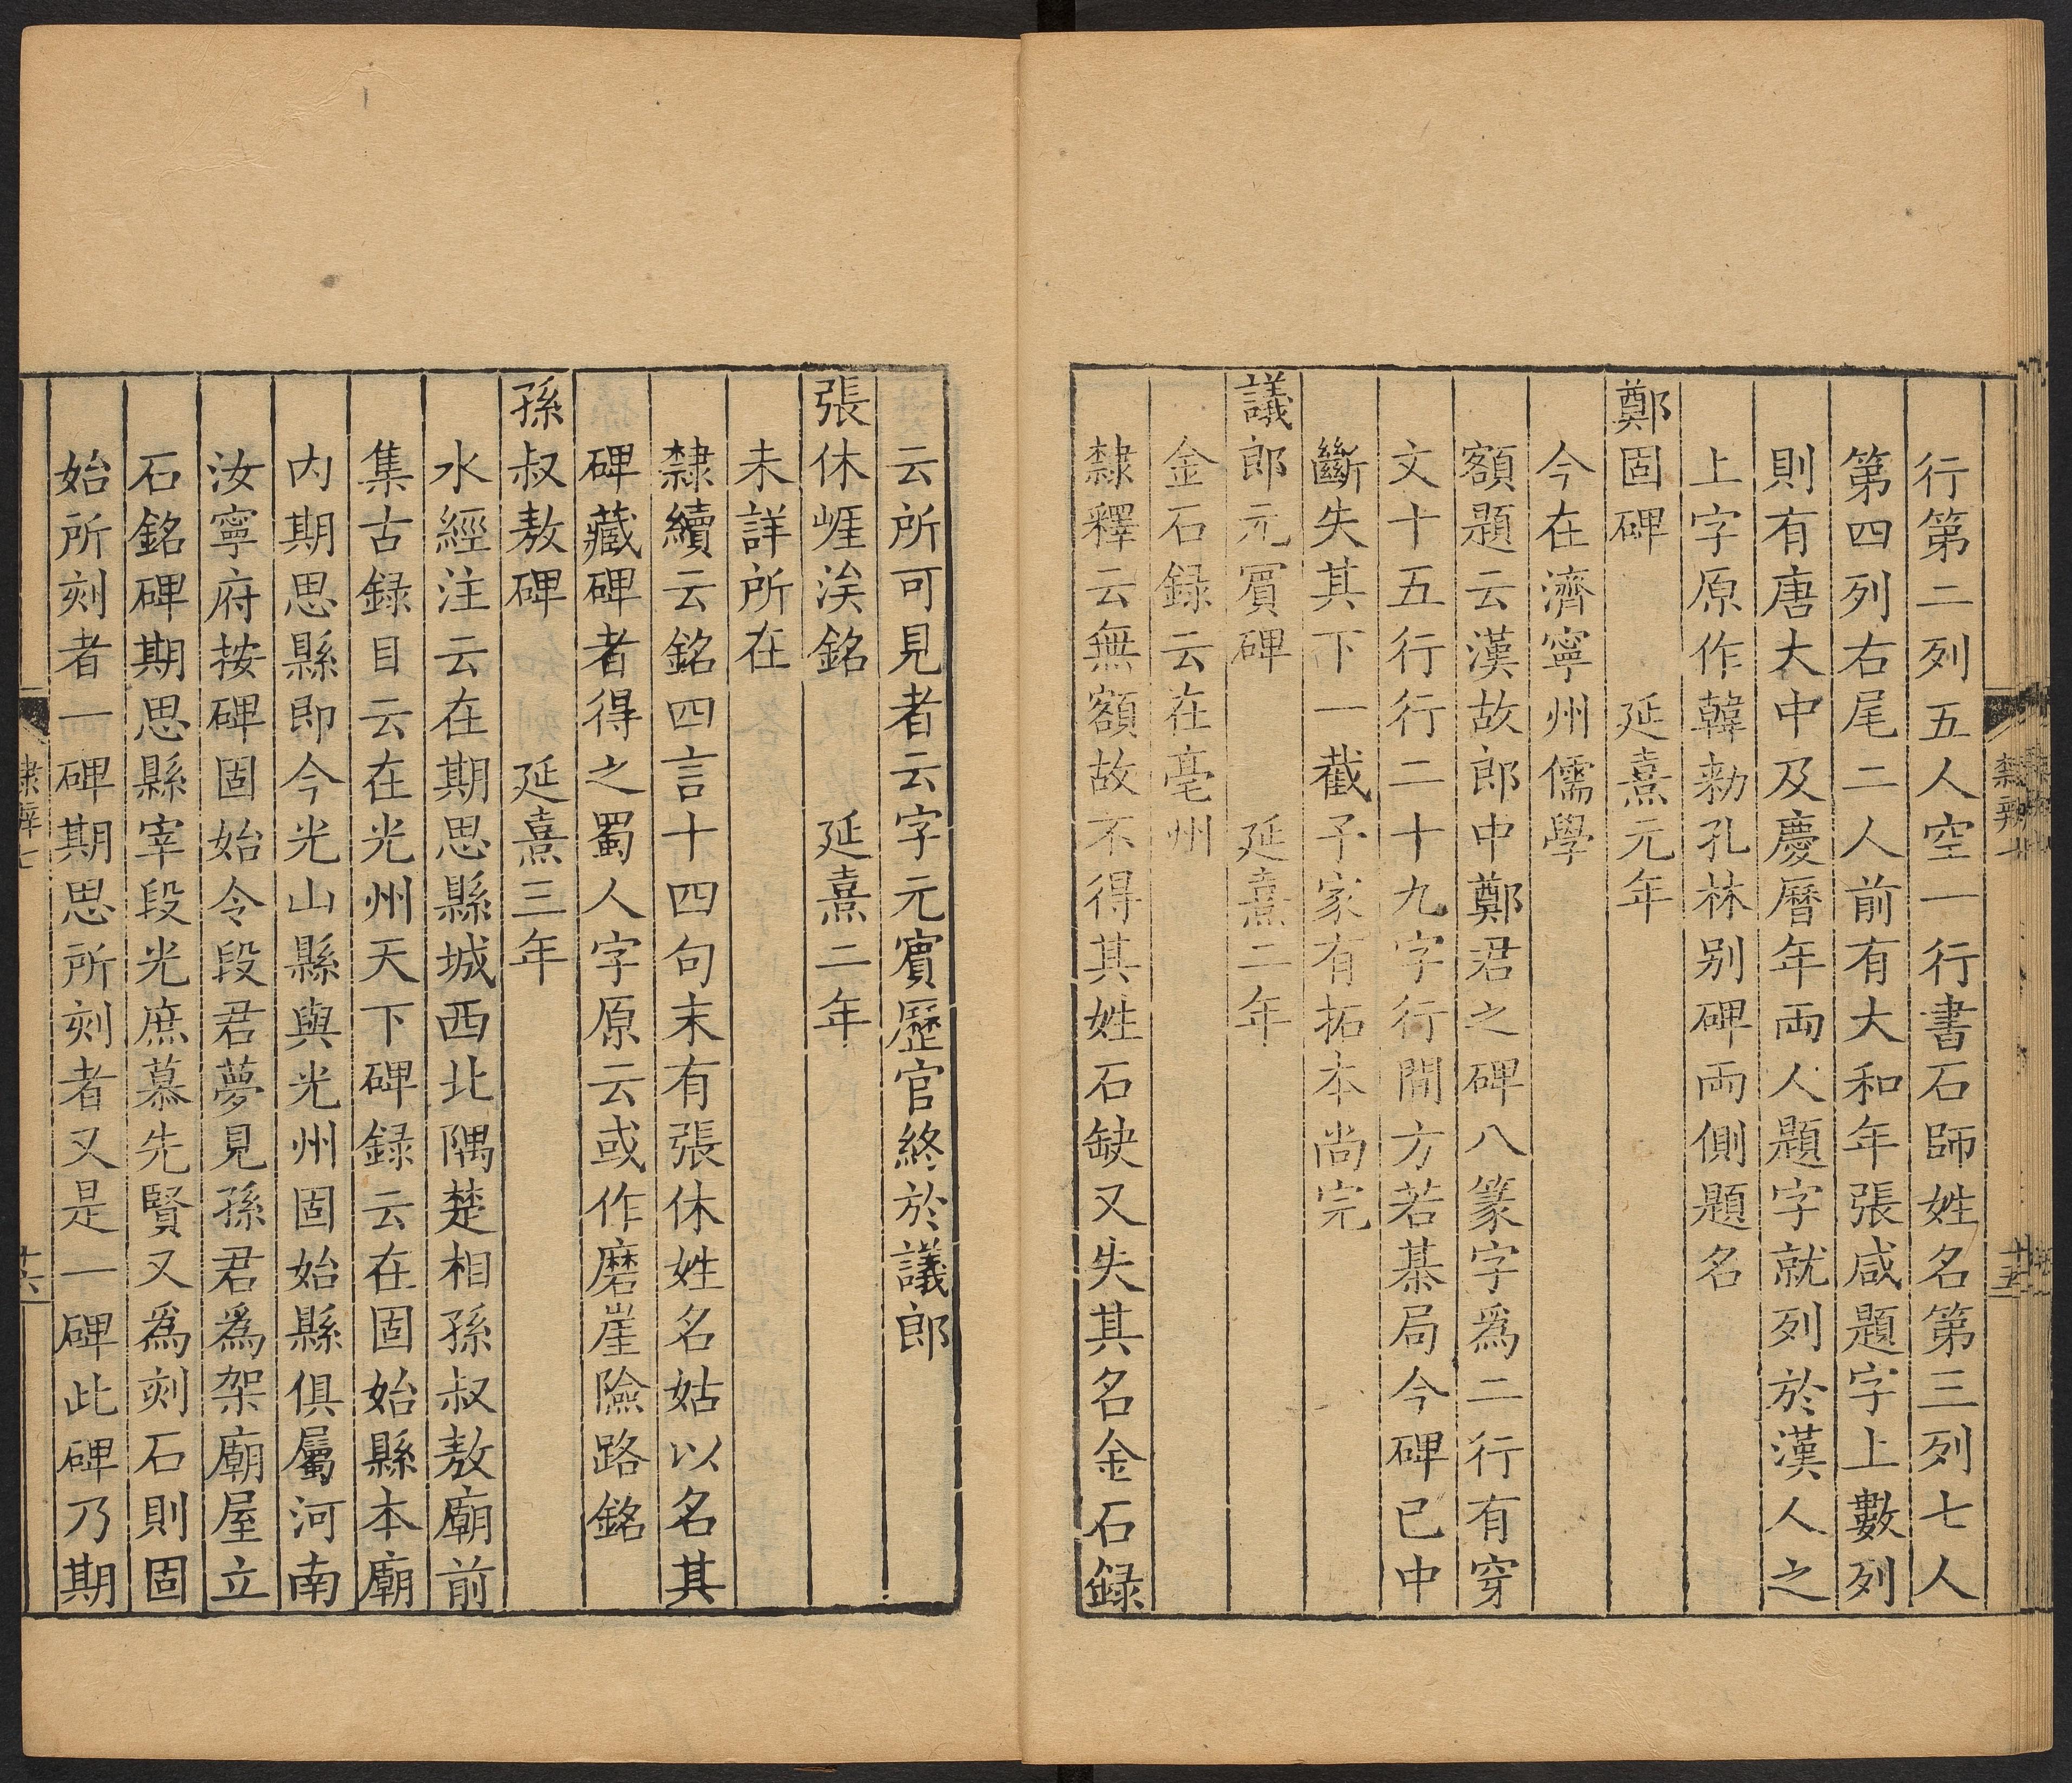 行第二列五人空一行書石師姓名第三列七人
第四列右尾二人前有大和年張咸題字上數列
則有唐大中及慶曆年両人題字就列於漢人之
上字原作韓勑孔林别碑両側題名
鄭固碑 延熹元年
今在濟寧州儒學
額題云漢故郎中鄭君之碑八篆字爲二行有穿
文十五行行二十九字行間方若棊局今碑已中
斷失其下一截予家有拓本尚完
議郎元賓碑 延熹二年
金石録云在亳州
隸釋云無額故不得其姓石缺又失其名金石録
云所可見者云字元賓歷官終於議郎
張休崕涘銘 延熹二年
未詳所在
隸續云銘四言十四句末有張休姓名姑以名其
碑藏碑者得之蜀人字原云或作磨崖險路銘
孫叔敖碑 延熹三年
水經注云在期思縣城西北隅楚相孫叔敖廟前
集古録目云在光州天下碑録云在固始縣本廟
内期思縣即今光山縣與光州固始縣俱屬河南
汝寧府按碑固始令段君夢見孫君爲架廟屋立
石銘碑期思縣宰段光庶慕先賢又爲刻石則固
始所刻者一碑期思所刻者又是一碑此碑乃期